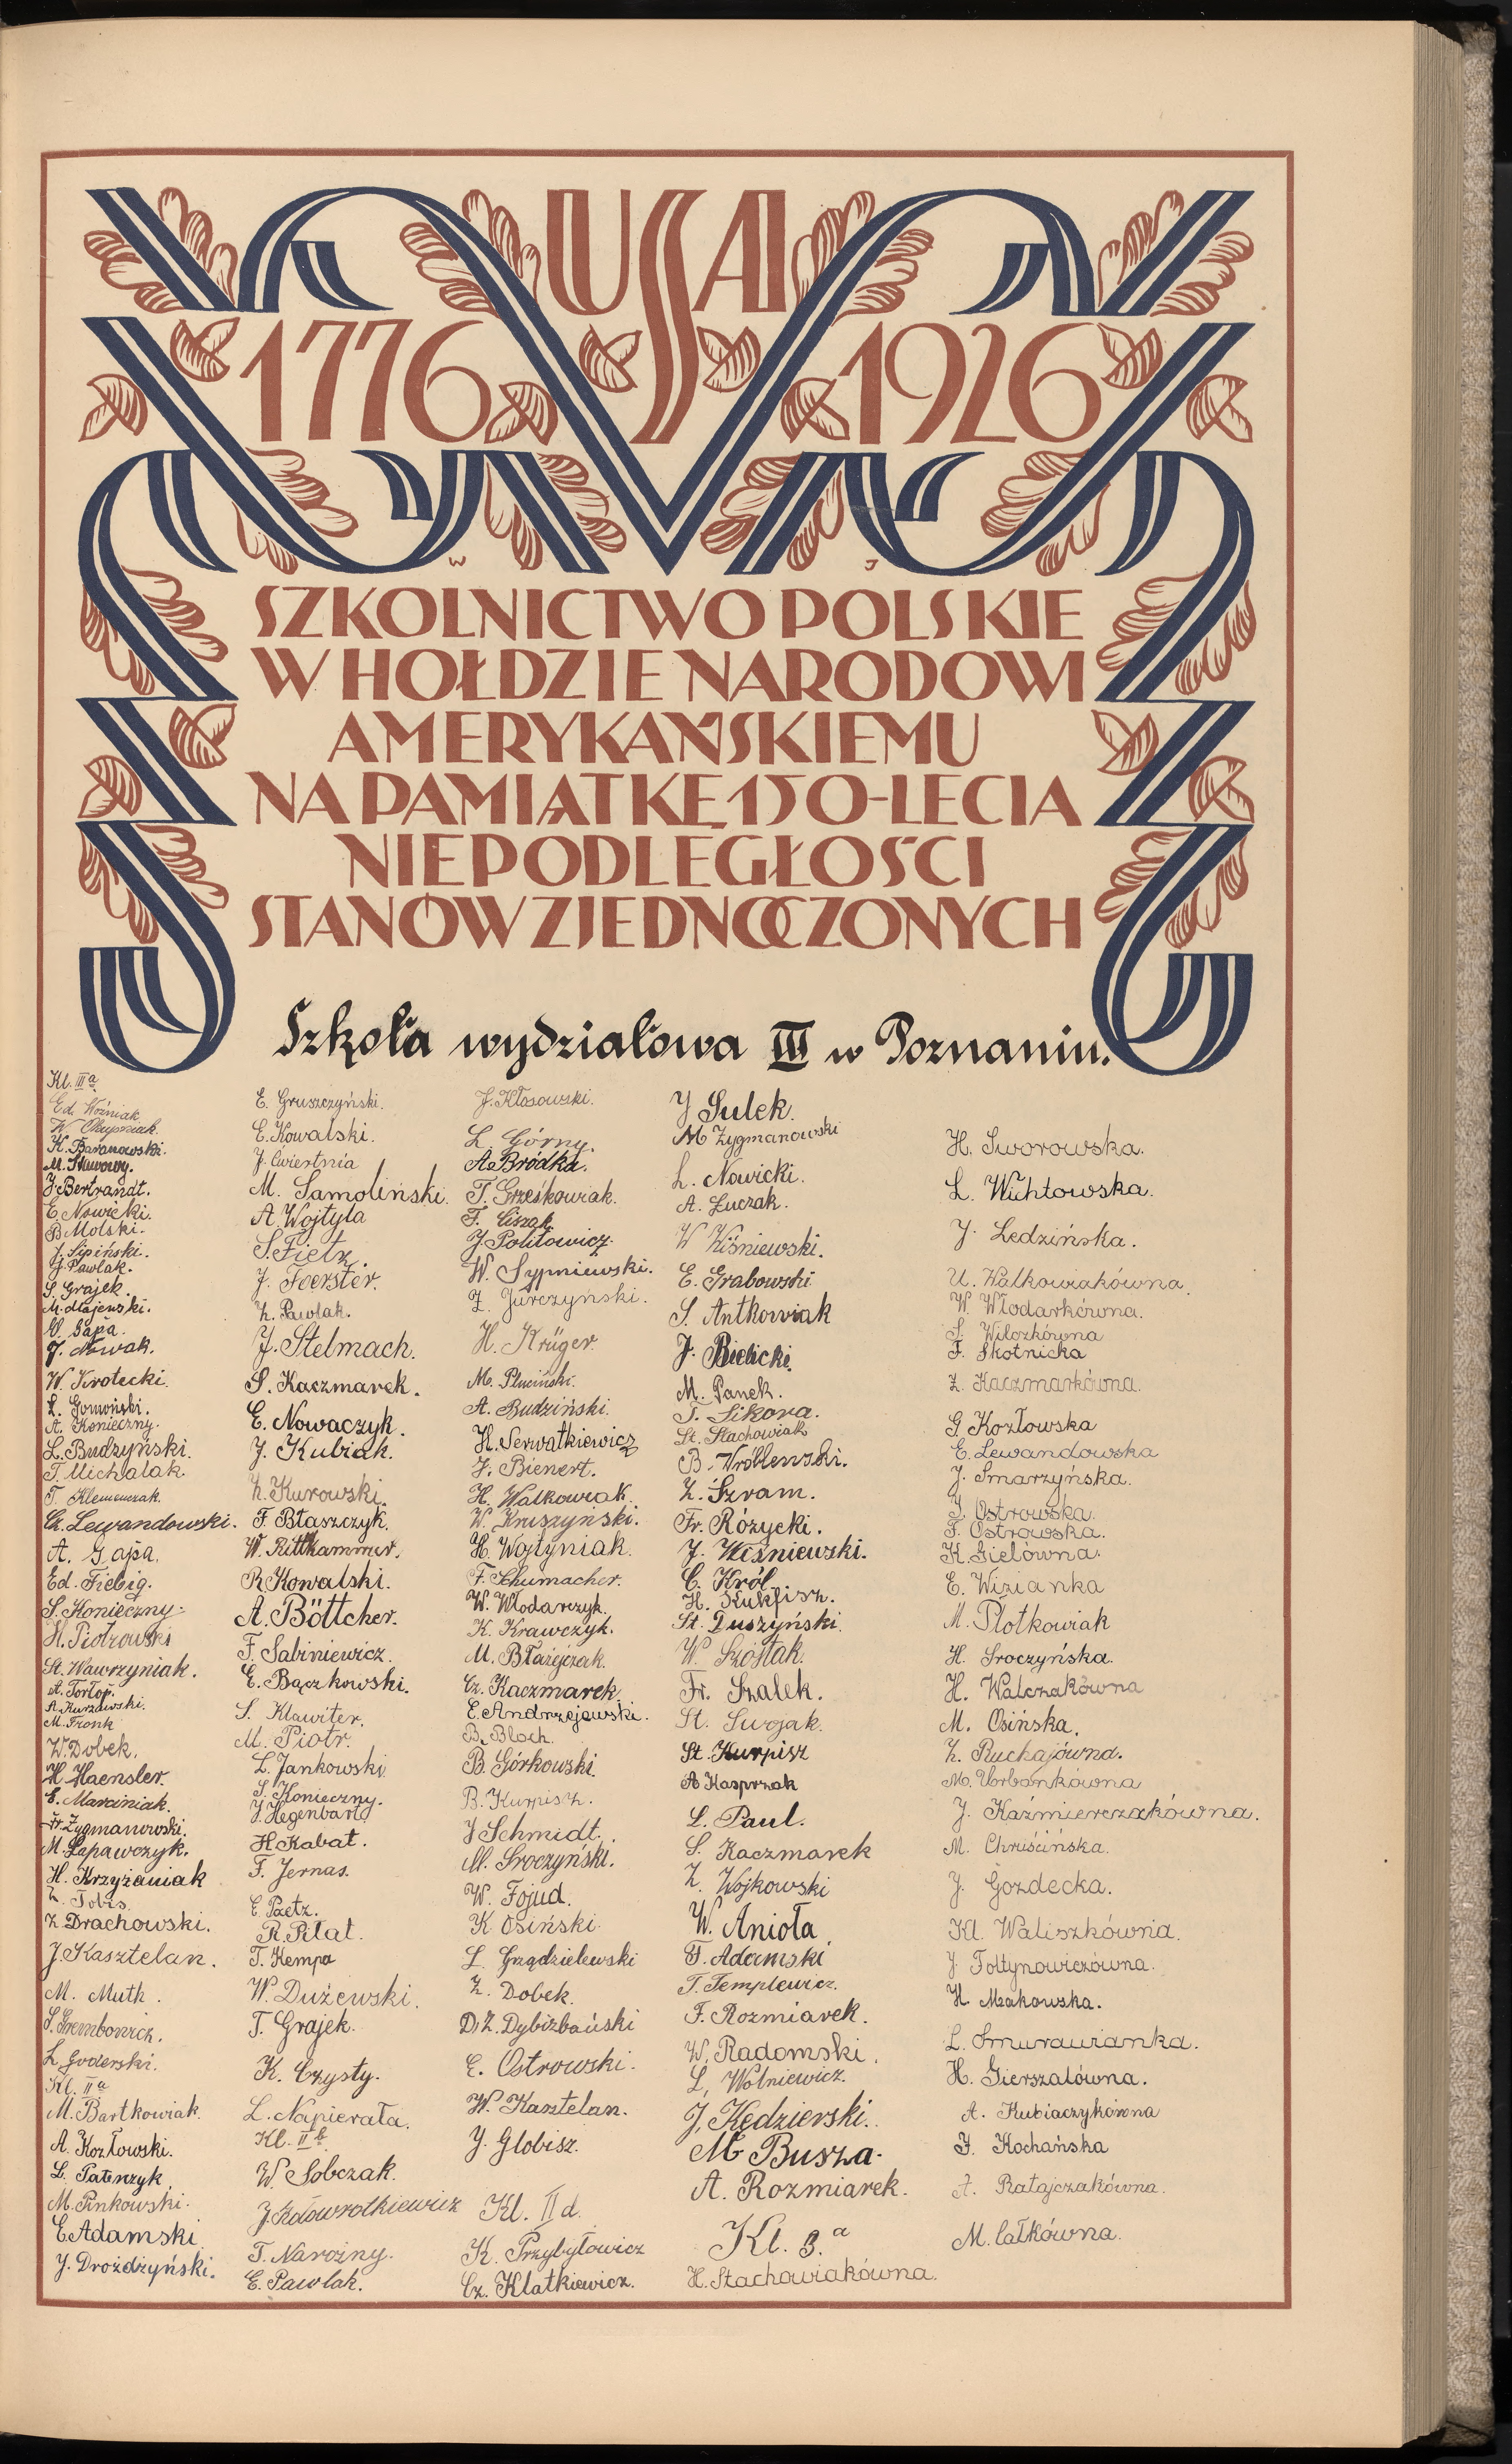 USA
1776 1926
W J
SZKOLNICTWO POLSKIE
W HOŁDZIE NARODOWI
AMERYKAŃSKIEMU
NA PAMIĄTKĘ 150-LECIA
NIEPODLEGŁOŚCI
STANÓW ZJEDNOCZONYCH
Szkoła wydziałowa III w Poznaniu.
Kl. III a
Ed. Woźniak
W.
K. Baranowski.
M. Stawowy.
J. Bertrandt.
E. Nowicki.
B. Molski.
J. Lipiński.
J. Pawlak.
S. Grajek.
M. Majewski.
W. Gapa.
J. Nowak.
W. Krotecki.
L. Gomoński.
A. Konieczny.
L. Budzyński.
T. Michalak.
T. Klemenczak.
Ch. Lewandowski.
A. Gapa.
Ed. Fiebig.
S. Konieczny.
H. Piotrowski
St. Wawrzyniak.
A. Tortop.
A. Kurzawski.
M. Fronk
W. Dobek.
H. Haensler.
E. Marciniak.
Fr. Zygmanowski.
M. Łapawczyk.
H. Krzyżaniak
Z. Tobis.
Z Drachowski.
J. Kasztelan.
M. Muth.
S. Grembowicz.
L. Goderski.
Kl. II a
M. Bartkowiak.
A. Kozłowski.
L. Patenzyk
M. Pinkowski.
E. Adamski
J. Drożdżyński.
E. Gruszczyński.
E. Kowalski.
J. Ćwiertnia
M. Samoliński.
A. Wojtyla
S. Fietz.
J. Foerster.
Z. Pawlak.
J. Stelmach.
S. Kaczmarek.
E. Nowaczyk.
J. Kubiak.
Z. Kurowski.
F. Błaszczyk.
W. Rittkammer.
R. Kowalski.
A. Böttcher.
F. Sabiniewicz.
E. Bączkowski.
S. Klawiter.
M. Piotr.
L. Jankowski
S. Konieczny.
J. Hegenbart
H. Kabat.
F. Jernas.
E. Paetz.
R. Piłat.
T. Kempa
W. Dużewski.
T. Grajek.
K. Czysty.
L. Napierała.
Kl. II b
W. Sobczak.
J. Kołowrotkiewicz
T. Narożny.
E. Pawlak.
J. Kłosowski.
L. Górny.
A. Bródka.
T. Grześkowiak.
F. Ciszak
J. Politowicz.
W. Sypniewski.
Z. Jurczyński.
H. Krüger.
M. Pluciński.
A. Budziński.
H. Serwatkiewicz
J. Bienert.
H. Walkowiak.
W. Kruszyński.
H. Wojtyniak.
F. Schumacher.
W. Włodarczyk.
K. Krawczyk.
M. Błażejczak.
Cz. Kaczmarek.
E. Andrzejewski.
B. Bloch.
B. Górkowski.
B. Kurpisz.
J Schmidt.
M. Sroczyński.
W. Fojud.
K. Osiński.
L. Grządzielewski
Z. Dobek.
D. Z. Dybizbański
E. Ostrowski.
W. Kasztelan.
J. Globisz.
Kl. II d.
K. Przybyłowicz
Cz. Klatkiewicz.
J Sulek.
M Zygmanowski
L. Nowicki.
A. Łuczak.
W Wiśniewski.
E. Grabowski
S. Antkowiak
J. Bielicki
M. Panek.
T. Sikora.
St. Stachowiak
B. Wróblewski.
Z. Szram.
Fr. Rożycki.
J. Wiśniewski.
C. Król.
H. Kukfisz.
St. Duszyński.
W. Szóstak.
Fr. Szalek.
St. Swojak.
St. Kurpisz
A Kasprzak
L. Paul.
S. Kaczmarek
Z. Wojkowski
W. Anioła
F. Adamski
T. Templewicz.
F. Rozmiarek.
W. Radomski.
L. Wolniewicz.
J. Kędzierski.
M Busza.
A. Rozmiarek.
Kl. 3. a
H. Stachowiakówna.
H. Sworowska.
L. Wichtowska.
J. Ledzińska.
U. Walkowiakówna.
W. Włodarkówna.
S. Wilczkówna
F. Skotnicka
Z. Kaczmarkówna.
G. Kozłowska
E. Lewandowska
J. Smarzyńska.
J. Ostrowska.
F. Ostrowska.
K. Gielówna.
E. Wizianka
M. Płotkowiak
H. Sroczyńska.
H. Walczakówna
M. Osińska.
Z. Ruchajówna.
M. Urbankówna
J. Kaźmierczakówna.
M. Chruścińska.
J. Gozdecka.
Kl. Waliszkówna.
J. Fołtynowiczówna.
H. Makowska.
L. Smurawianka.
H. Gierszalówna.
A. Kubiaczykówna
J. Kochańska
A. Ratajczakówna.
M. Całkówna.